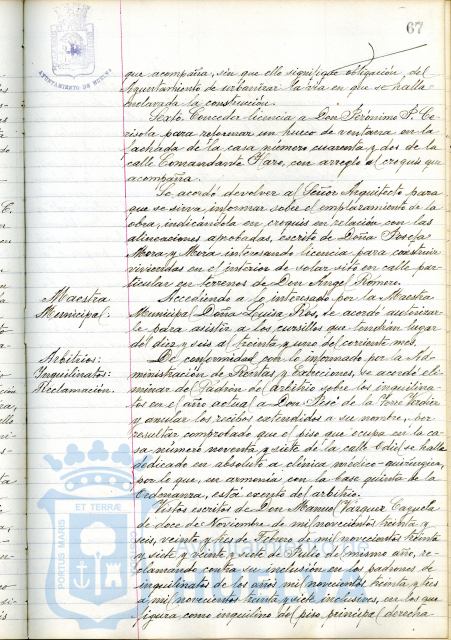 67
AYUNTAMIENTO DE HUELVA
que acompaña, sin que ello signifique obligación del
Ayuntamiento de urbanizar la vía en que se halla
enclavada la construcción.
Sexto. Conceder licencia a Don Jerónimo P.
para reformar un hueco de ventana en la
fachada de la casa número cuarenta y dos de la
calle Comandante Haro, con arreglo al croquis que
acompaña.
Se acordó devolver al Señor Arquitecto para
que se sirva informar sobre el emplazamiento de la
obra, indicándola en croquis en relación con las
alineaciones aprobadas, escrito de Doña Josefa
Mora y Mora interesando licencia para construir
viviendas en el interior de solar sito en calle par-
ticular en terrenos de Don Angel Romero.
Maestra
Municipal.
Accediendo a lo interesado por la Maestra
Municipal Doña Luisa Ros, se acordó autorizar-
le para asistir a los cursillos que tendrán lugar
del diez y seis al treinta y uno del corriente mes.
Arbitrios:
Inquilinatos:
Reclamación.
De conformidad con lo informado por la Ad-
ministración de Rentas y Exacciones, se acordó eli-
minar del Padrón del arbitrio sobre los inquilina-
tos en el año actual a Don José de la Torre
y anular los recibos extendidos a su nombre, por
resultar comprobado que el piso que ocupa en la ca-
sa número noventa y siete de la calle se halla
dedicado en absoluto a clínica médico-quirúrgica,
por lo que, en armonía con la base quinta de la
Ordenanza, está exento del arbitrio.
Vistos escritos de Don Manuel Vázquez
de doce de Noviembre de mil novecientos treinta y
seis, veinte y tres de Febrero de mil novecientos treinta
y siete y veinte y siete de Julio del mismo año, re-
clamando contra su inclusión en los padrones de
inquilinatos de los años mil novecientos treinta y tres
a mil novecientos treinta y siete inclusives, en los que
figura como inquilino del piso principal derecha
PORTUS MARIS
ET TERRÆ